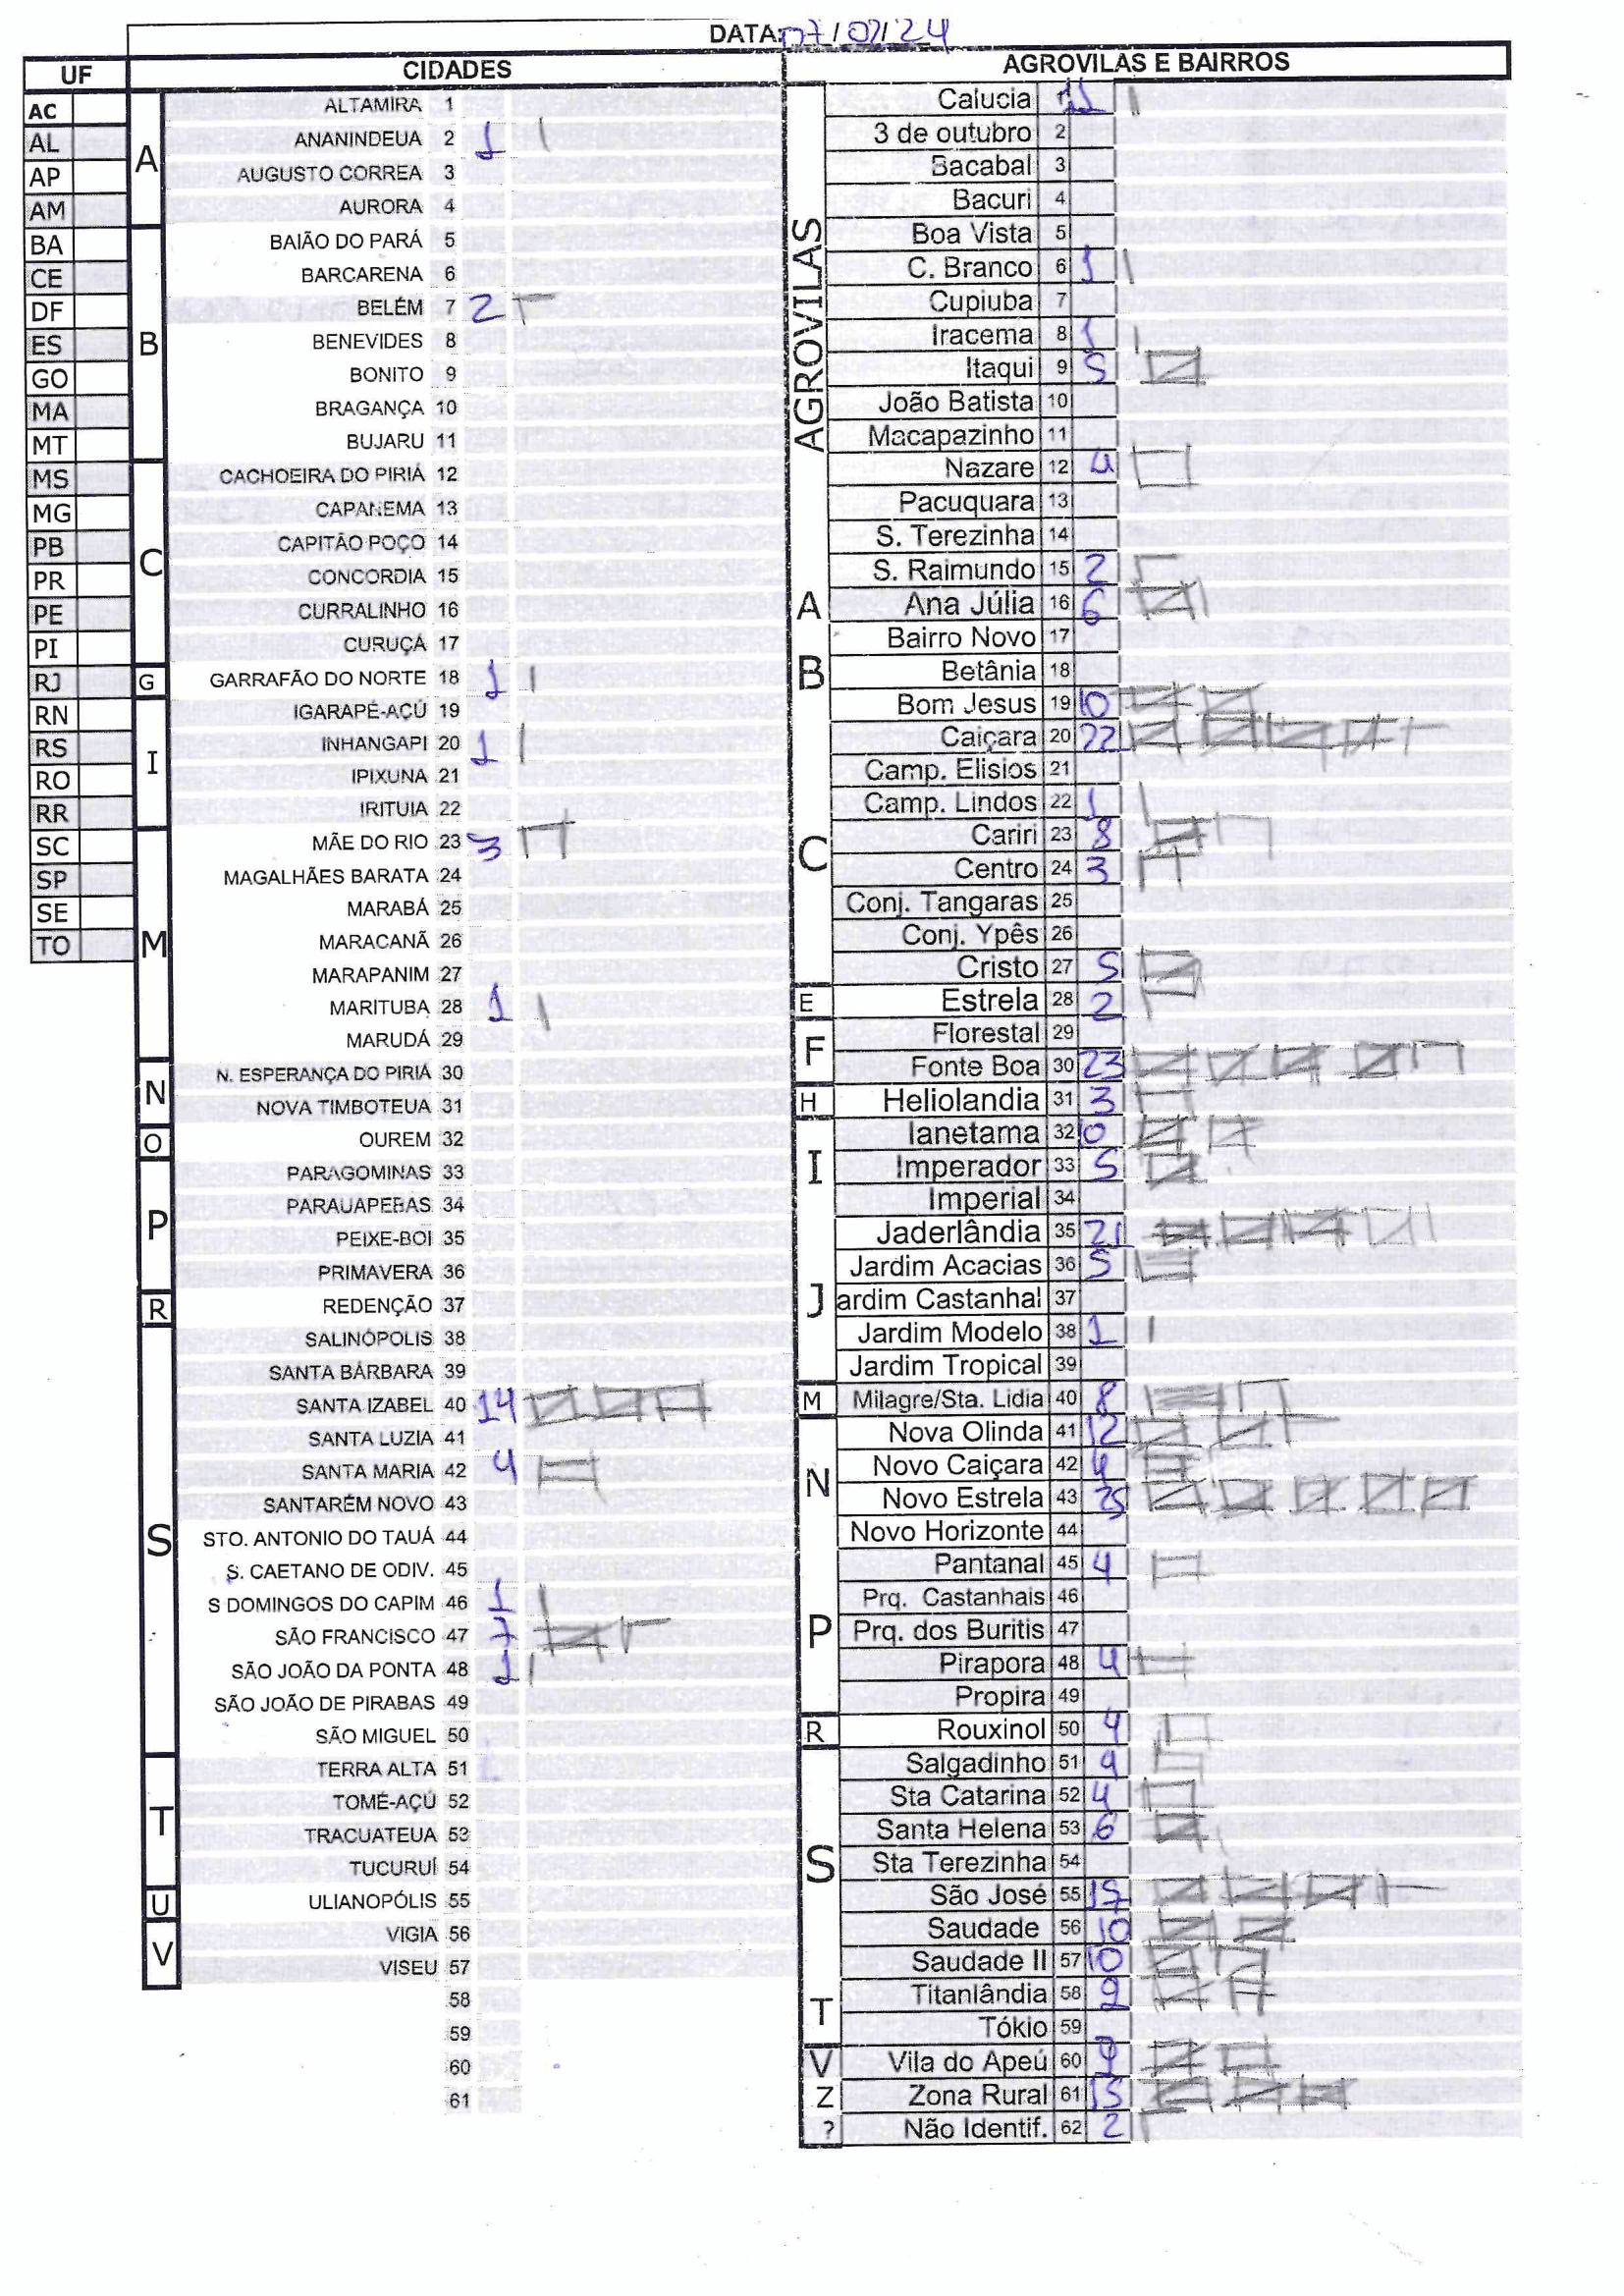 DATA: 07/02/24
UF CIDADES AGROVILAS E BAIRROS
AC
AL
AP
AM
BA
CE
DF
ES
GO
MA
MT
MS
MG
PB
PR
PE
PI
RJ
RN
RS
RO
RR
SC
SP
SE
TO
A
ALTAMIRA 1
ANANINDEUA 2 1
AUGUSTO CORREA 3
AURORA 4
B
BAIÃO DO PARÁ 5
BARCARENA 6
BELÉM 7 2
BENEVIDES 8
BONITO 9
BRAGANÇA 10
BUJARU 11
C
CACHOEIRA DO PIRIÁ 12
CAPANEMA 13
CAPITÃO POÇO 14
CONCORDIA 15
CURRALINHO 16
CURUÇÁ 17
G
GARRAFÃO DO NORTE 18 1
I
IGARAPÉ-AÇÚ 19
INHANGAPI 20 1
IPIXUNA 21
IRITUIA 22
M
MÃE DO RIO 23 3
MAGALHÃES BARATA 24
MARABÁ 25
MARACANÃ 26
MARAPANIM 27
MARITUBA 28 1
MARUDÁ 29
N
N. ESPERANÇA DO PIRIÁ 30
NOVA TIMBOTEUA 31
O
OUREM 32
P
PARAGOMINAS 33
PARAUAPEBAS 34
PEIXE-BOI 35
PRIMAVERA 36
R
REDENÇÃO 37
S
SALINÓPOLIS 38
SANTA BÁRBARA 39
SANTA IZABEL 40 14
SANTA LUZIA 41
SANTA MARIA 42 4
SANTARÉM NOVO 43
STO. ANTONIO DO TAUÁ 44
S. CAETANO DE ODIV. 45
S DOMINGOS DO CAPIM 46 1
SÃO FRANCISCO 47 7
SÃO JOÃO DA PONTA 48 1
SÃO JOÃO DE PIRABAS 49
SÃO MIGUEL 50
T
TERRA ALTA 51
TOMÉ-AÇÚ 52
TRACUATEUA 53
TUCURUÍ 54
U
ULIANOPÓLIS 55
V
VIGIA 56
VISEU 57
58
59
60
61
AGROVILAS
Calucia 1
3 de outubro 2
Bacabal 3
Bacuri 4
Boa Vista 5
C. Branco 6 1
Cupiuba 7
Iracema 8 1
Itaqui 9 5
João Batista 10
Macapazinho 11
Nazare 12 4
Pacuquara 13
S. Terezinha 14
S. Raimundo 15 2
A
Ana Júlia 16 6
B
Bairro Novo 17
Betânia 18
Bom Jesus 19 10
C
Caiçara 20 22
Camp. Elisios 21
Camp. Lindos 22 1
Cariri 23 8
Centro 24 3
Conj. Tangaras 25
Conj. Ypês 26
Cristo 27 5
E
Estrela 28 2
F
Florestal 29
Fonte Boa 30 23
H
Heliolandia 31 3
I
Ianetama 32 10
Imperador 33 5
Imperial 34
J
Jaderlândia 35 21
Jardim Acacias 36 5
ardim Castanhal 37
Jardim Modelo 38 1
Jardim Tropical 39
M
Milagre/Sta. Lidia 40 8
N
Nova Olinda 41 12
Novo Caiçara 42 4
Novo Estrela 43 25
Novo Horizonte 44
P
Pantanal 45 4
Prq. Castanhais 46
Prq. dos Buritis 47
Pirapora 48 4
Propira 49
R
Rouxinol 50 4
S
Salgadinho 51 4
Sta Catarina 52 4
Santa Helena 53 6
Sta Terezinha 54
São José 55
Saudade 56 10
Saudade II 57 10
T
Titanlândia 58 9
Tókio 59
V
Vila do Apeú 60 9
Z
Zona Rural 61 15
?
Não Identif. 62 2